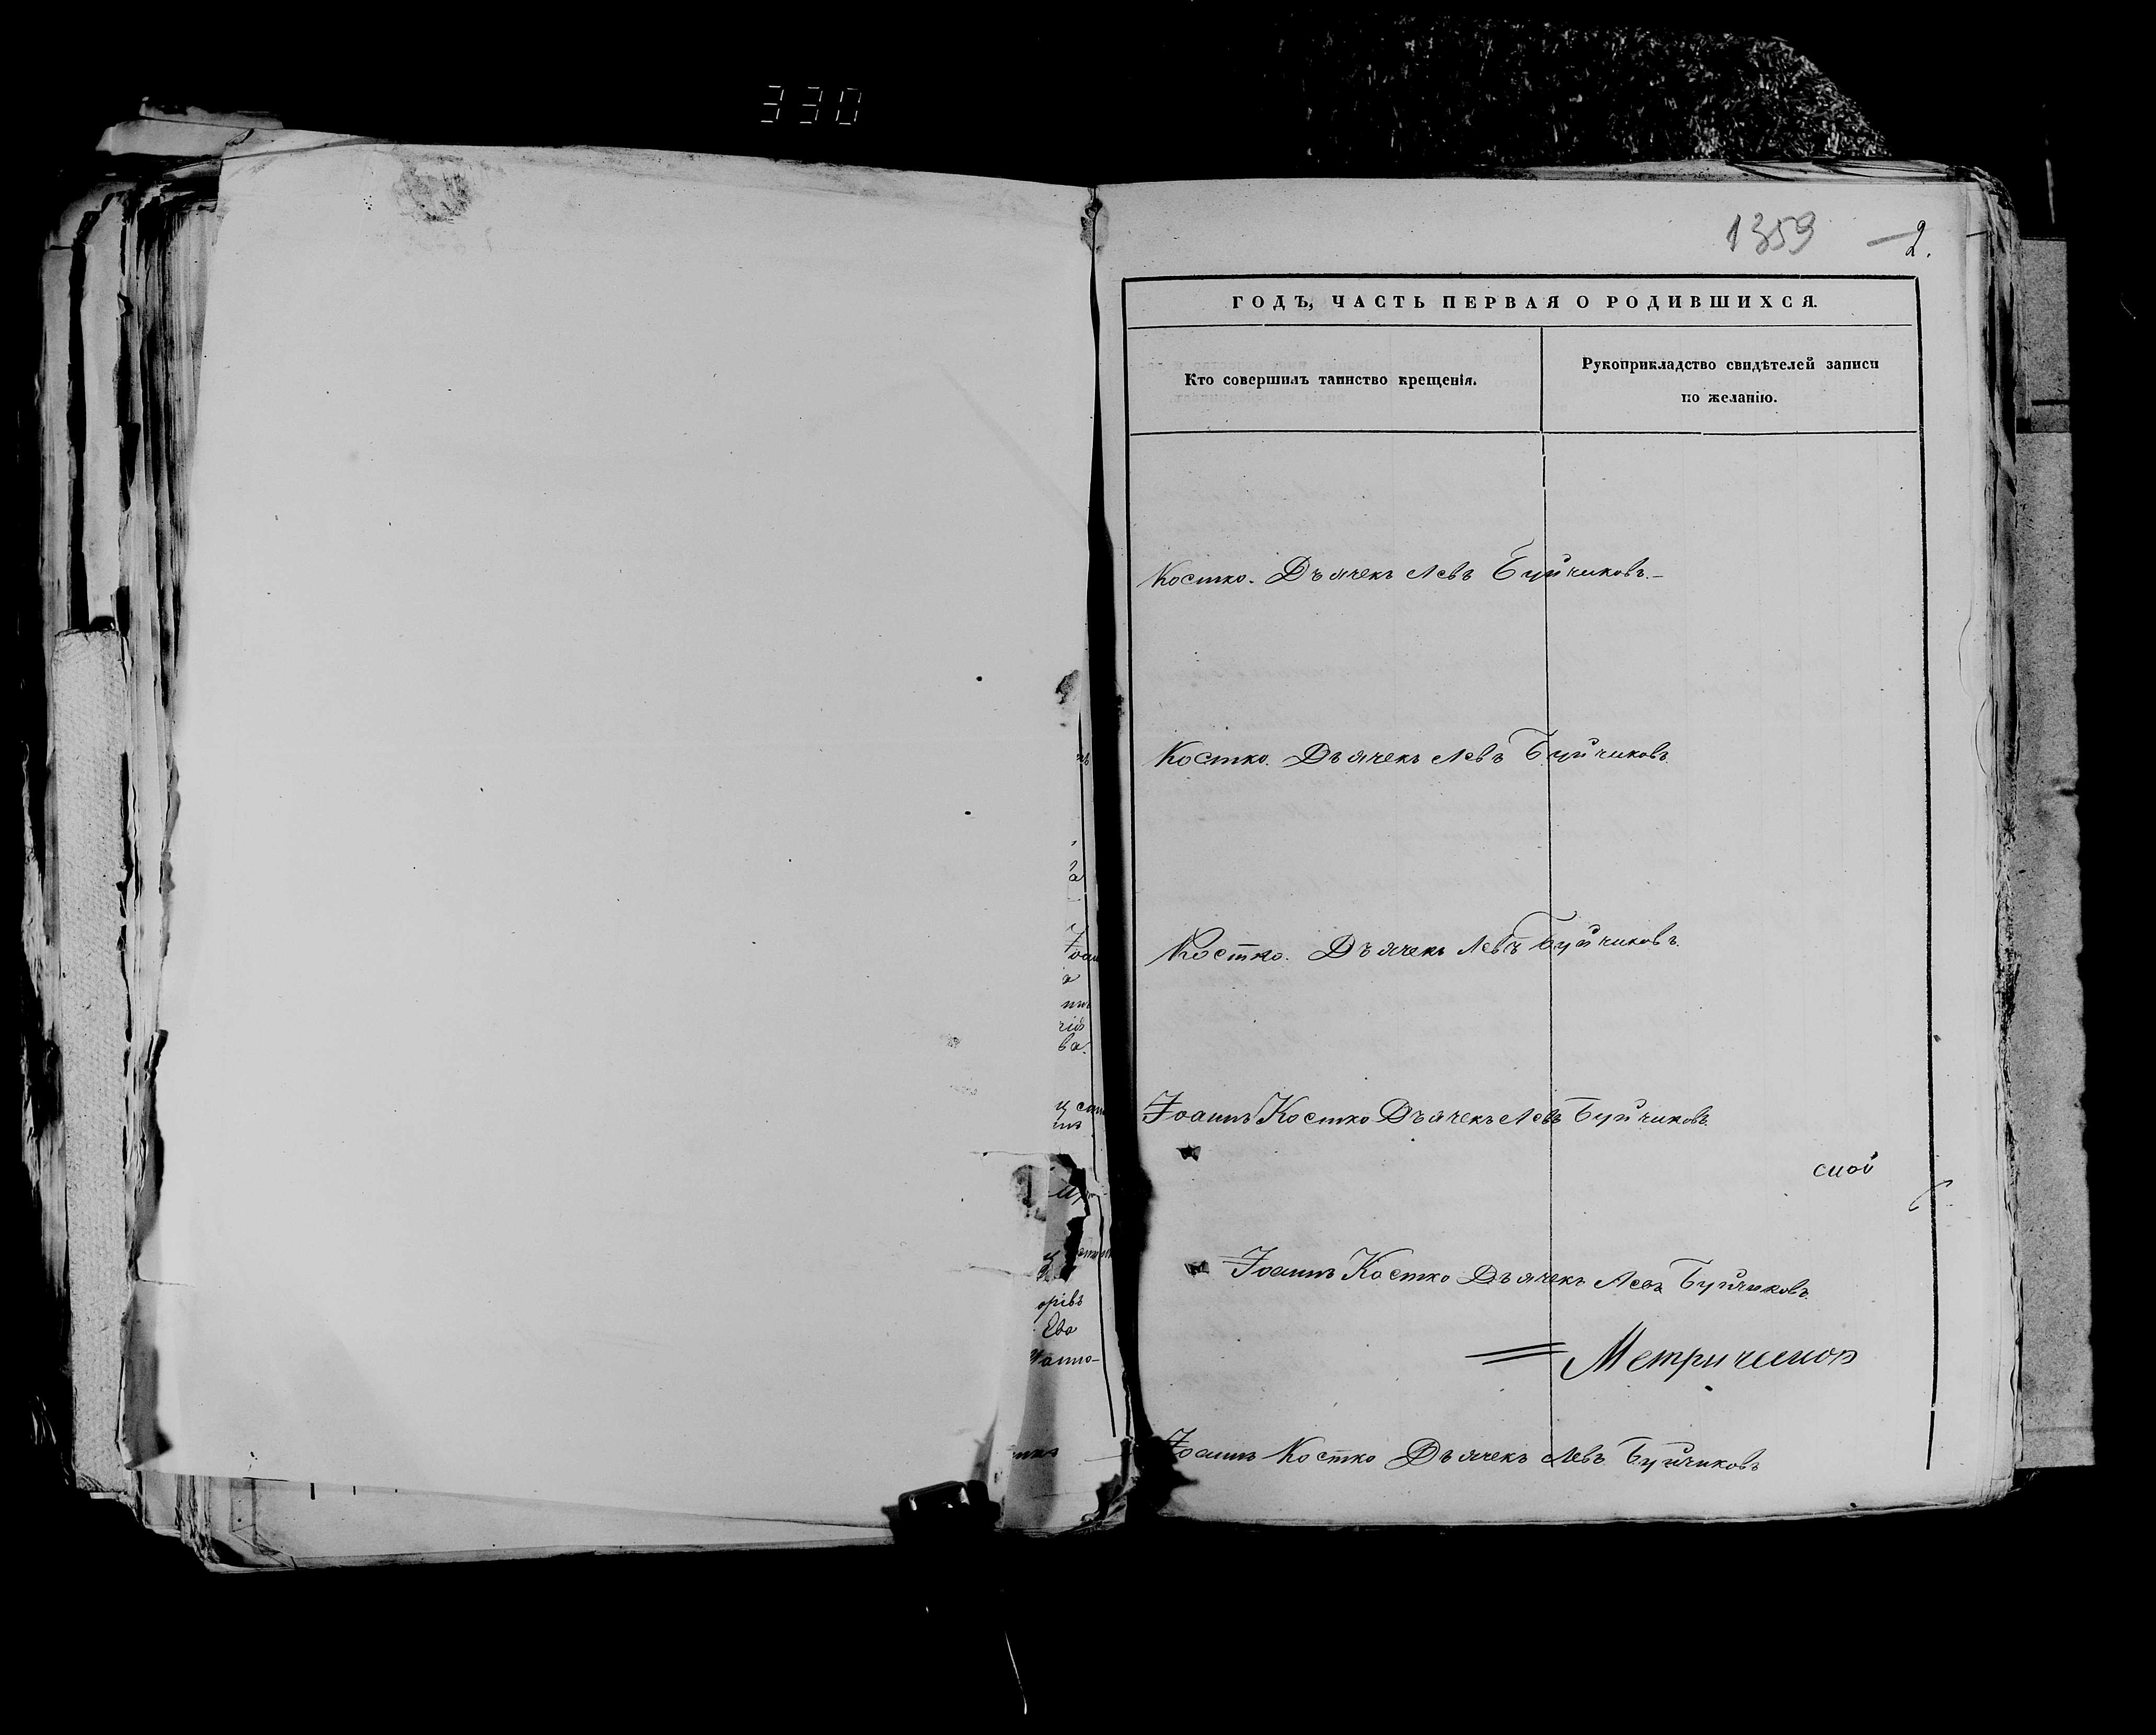 330
1359 2.
ГОДЪ, ЧАСТЬ ПЕРВАЯ О РОДИВШИХСЯ.
Кто совершилъ таинство крещенія.
Рукоприкладство свидѣтелей записи
по желанію.
Костко. Дъячекъ Левъ Буйчиковъ.
Костко. Дъячекъ Левъ Буйчиковъ.
Костко. Дъячекъ Левъ Буйчиковъ.
Іоаннъ Костко Дъячекъ Левъ Буйчиковъ.
ской
Іоаннъ Костко Дъячекъ Левъ Буйчиковъ.
Метрической
Іоаннъ Костко Дъячекъ Левъ Буйчиковъ
ва.
орівъ
Ева